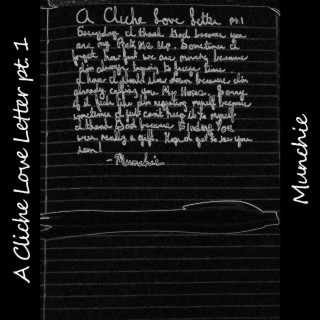 A Cliche Love Letter pt. 1
A Cliche Love Letter pt.1
Everyday I thank God because you
are my Pick Me Up. Sometimes I
forget how we are money because
I'm always trying to
I hope I should slow down because I'm
already calling you My Honor. Sorry
if I feel like I'm repeating myself because
sometimes I just can't keep it to myself
I thank God because finding you
was really a gift. Hope I get to see you
soon!
- Munchie
Munchie